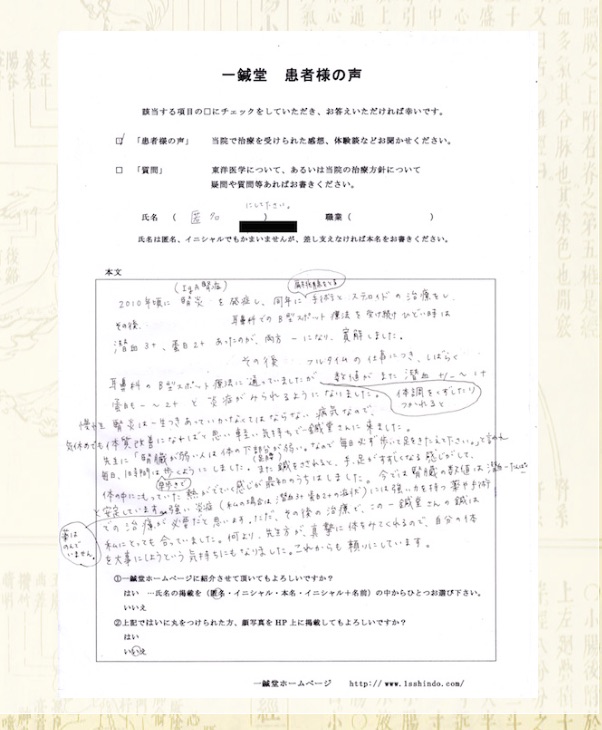 一鍼堂 患者様の声
該当する項目の□にチェックをしていただき、お答えいただければ幸いです。
☑ 「患者様の声」 当院で治療を受けられた感想、体験談などお聞かせください。
□ 「質問」 東洋医学について、あるいは当院の治療方針について
疑問や質問等あればお書きください。
にしてください。
氏名 ( 匿名 ) 職業 ( )
氏名は匿名、イニシャルでもかまいませんが、差し支えなければ本名をお書きください。
本文
(IgA腎症)
2010年頃に 腎炎 を発症し、同年に 手術と ステロイドの治療をし、
その後、 耳鼻科でのB型スポット療法を受け続け ひどい時は
潜血3+、蛋白2+ あったのが、両方 − になり、寛解しました。
その後 フルタイムの仕事につき、しばらく
耳鼻科のB型スポット療法に通っていましたが 数値がまた 潜血 +~−1+
蛋白も−~2+ と 炎症がみられるようになりました。
体調をくずしたり
つかれると
慢性腎炎は一生つきあっていかなくてはならない病気なので、
気休めでも体質改善になればと思い軽い気持ちで一鍼堂さんに来ました。
先生に「腎臓が弱い人は体の下部が弱い。なので毎日必ず歩いて足をきたえて下さい。」と言われ
(足腰)
毎日、1時間は歩くようにしました。また鍼をされると、手、足がすずしくなる感じがして、
早歩きで
体の中にこもっていた熱がでていく感じが最初のうちはしました。今では腎臓の数値は潜血−たんぱく−
と安定しています。強い炎症(私の場合は潜血3+蛋白2+の症状)には強い力を持つ薬や手術
薬は
のんで
いません。
での治療が必要だと思います。ただ、その後の治療で、この一鍼堂さんの鍼は
私にとっても合っていました。何より、先生方が、真摯に体をみてくれるので、自分の体
を大事にしようという気持ちにもなりました。これからも頼りにしています。
①一鍼堂ホームページに紹介させて頂いてもよろしいですか?
はい …氏名の掲載を(匿名・イニシャル・本名・イニシャル+名前)の中からひとつお選び下さい。
いいえ
②上記ではいに丸をつけられた方、顔写真をHP上に掲載してもよろしいですか?
はい
いいえ
一鍼堂ホームページ http://www.1sshindo.com/